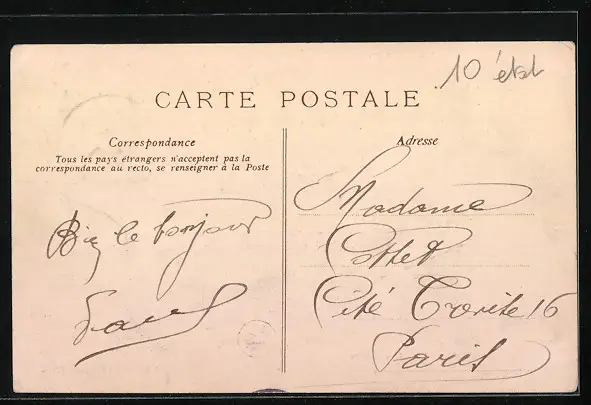 10 état
CARTE POSTALE
Correspondance
Tous les pays étrangers n'acceptent pas la
correspondance au recto, se renseigner à la Poste
Bien le bonjour
Adresse
Madame
Cottet
Cité 16
Paris